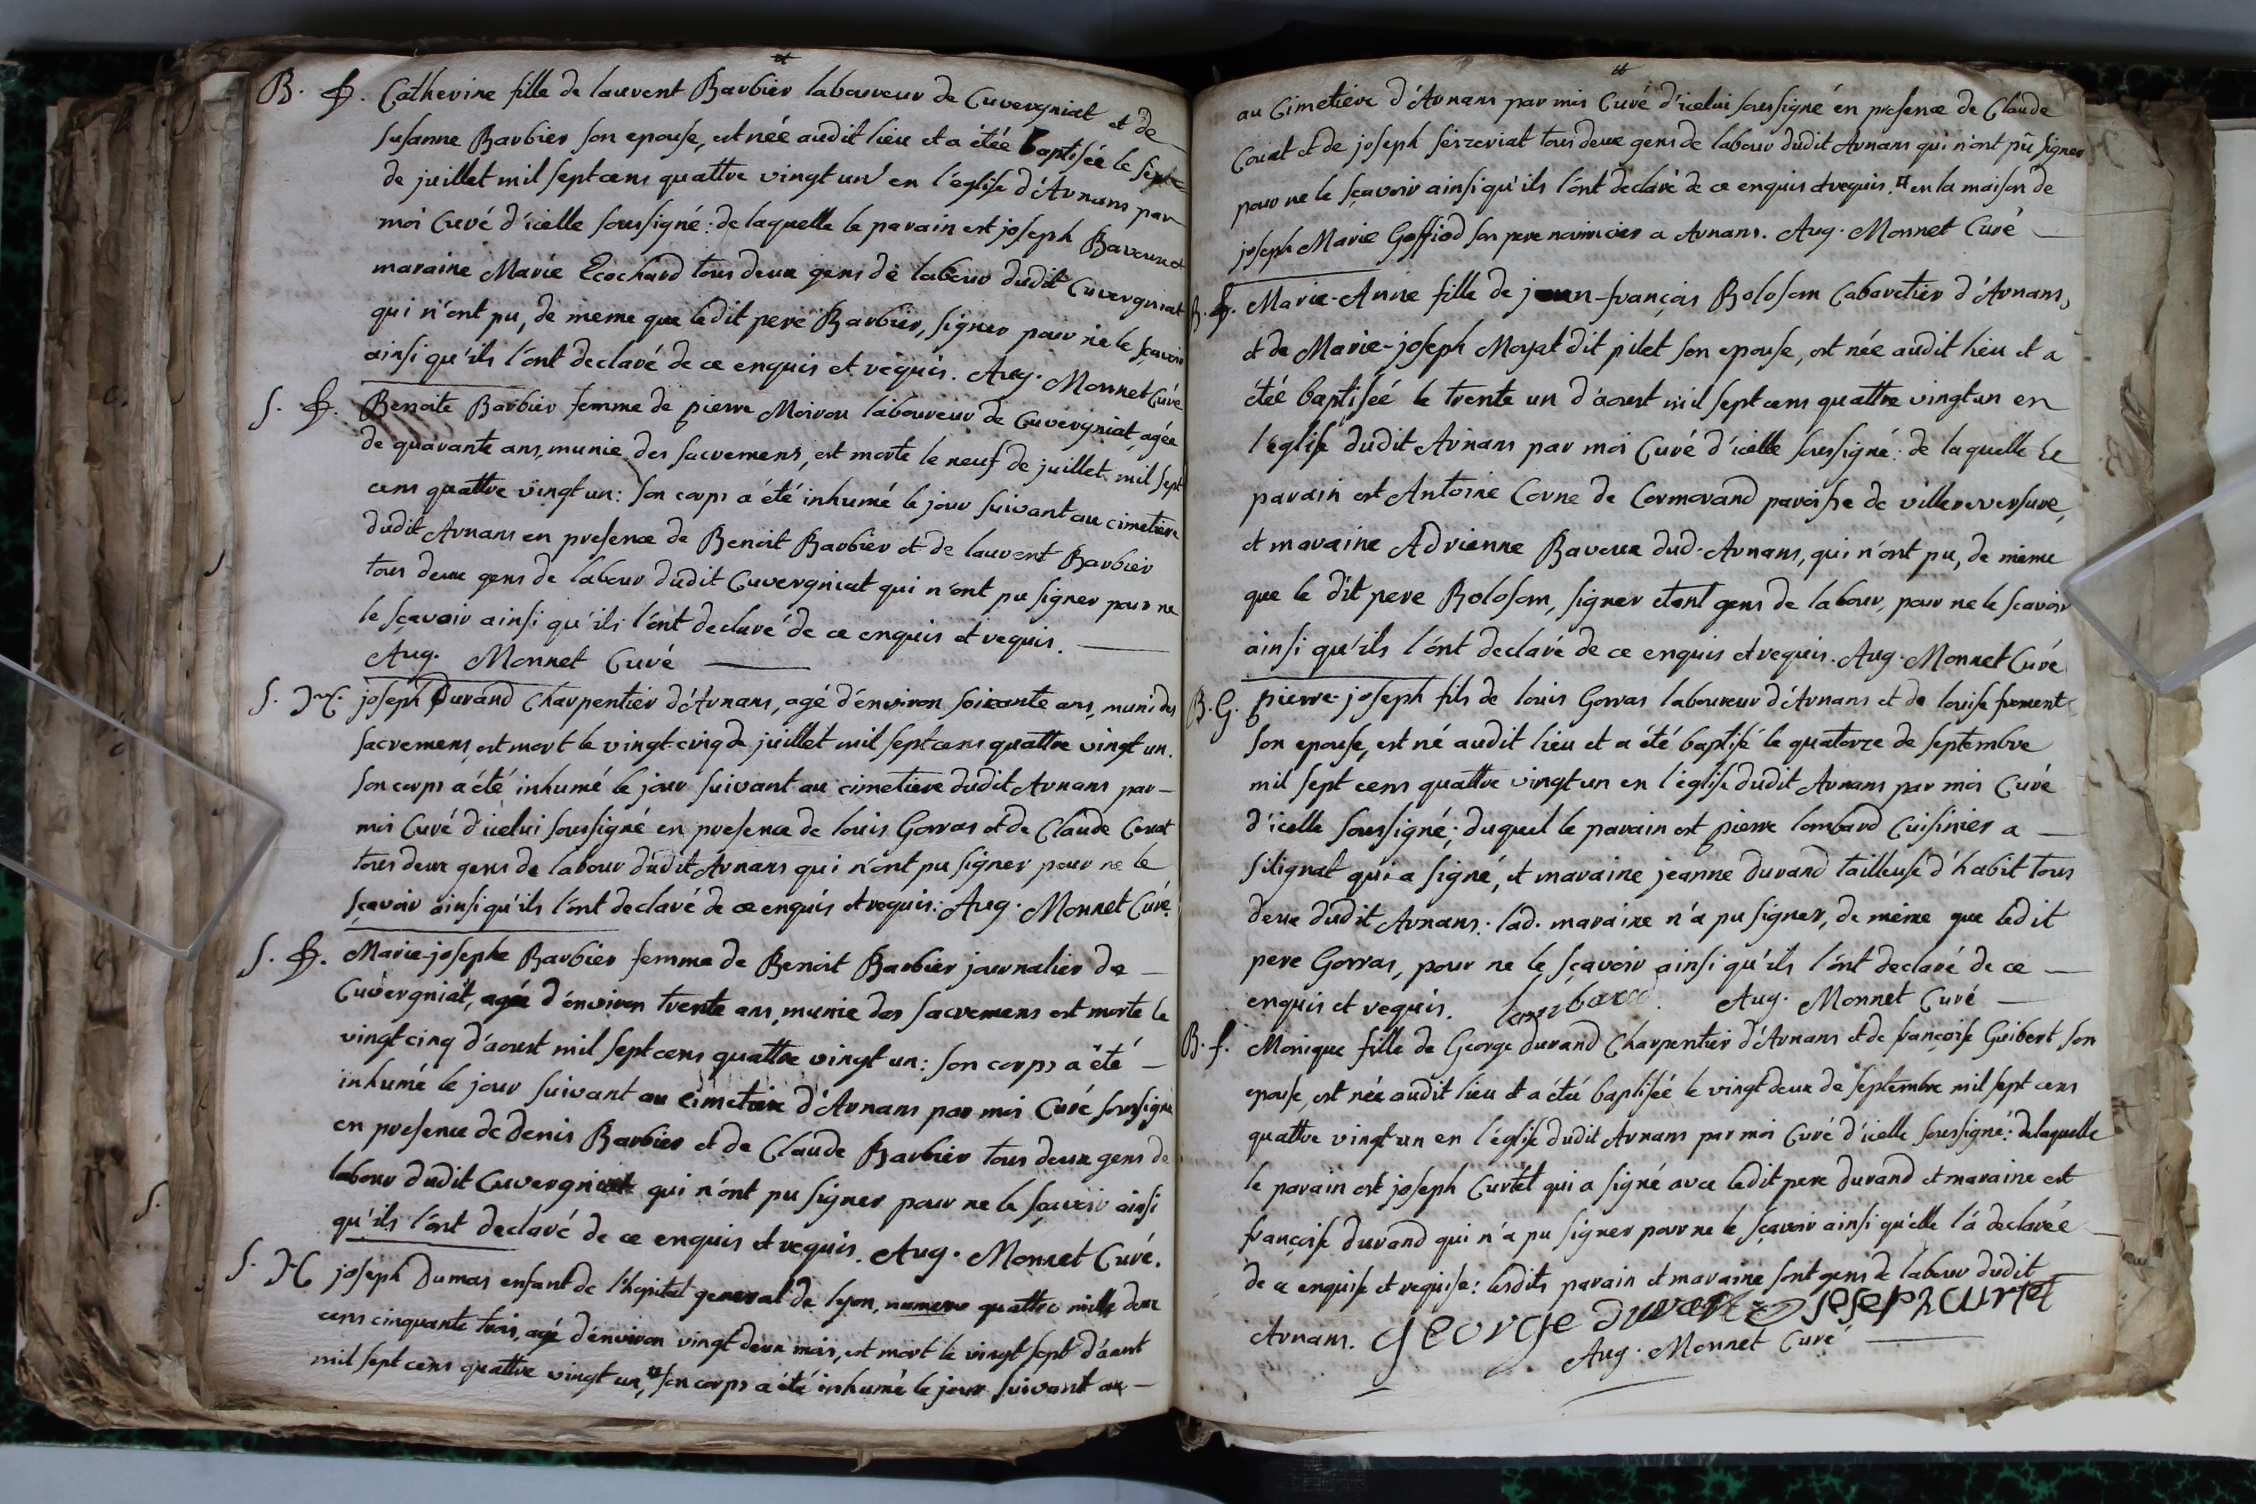 B. f. Catherine fille de laurent Barbier laboureur de Cuvergniat et de
Susanne Barbier son epouse, est née audit lieu et a étée baptisée le sept
de juillet mil sept cens quattre vingt un en l'eglise d'Arnans par
moi Curé d'icelle soussigné: de laquelle le parain est joseph Baveux et
maraine Marie Ecochard tous deux gens de labour dudit Cuvergniat
qui n'ont pu, de meme que ledit pere Barbier, signer pour ne le sçavoir
ainsi qu'ils l'ont declaré de ce enquis et requis. Aug. Monnet Curé
S. f. Benoite Barbier femme de pierre Moiroux laboureur de Cuvergniat, agée
de quarante ans, munie des sacremens, est morte le neuf de juillet mil sept
cens quattre vingt un: son corps a été inhumé le jour suivant au cimetiere
dudit Arnans en presence de Benoit Barbier et de laurent Barbier
tous deux gens de labour dudit Cuvergniat qui n'ont pu signer pour ne
le sçavoir ainsi qu'ils l'ont declaré de ce enquis et requis.
Aug. Monnet Curé
S. M. joseph Durand Charpentier d'Arnans, agé d'environ soixante ans, muni des
sacremens, est mort le vingt-cinq de juillet mil sept cens quattre vingt un.
son corps a été inhumé le jour suivant au cimetiere dudit Arnans par
moi Curé d'icelui soussigné en presence de louis Gorras et de Claude Couat
tous deux gens de labour dudit Arnans qui n'ont pu signer pour ne le
sçavoir ainsi qu'ils l'ont declaré de ce enquis et requis. Aug. Monnet Curé.
S. f. Marie-josephe Barbier femme de Benoit Barbier journalier de
Cuvergniat, agée d'environ trente ans, munie des sacremens est morte le
vingt cinq d'aoust mil sept cens quattre vingt un: son corps a été
inhumé le jour suivant au cimetiere d'Arnans par moi Curé soussigné
en presence de denis Barbier et de Claude Barbier tous deux gens de
labour dudit Cuvergniat qui n'ont pu signer pour ne le sçavoir ainsi
qu'ils l'ont declaré de ce enquis et requis. Aug. Monnet Curé.
S. M joseph Dumas enfant de l'hopital general de lyon, numero quattre mille deux
cens cinquante trois, agé d'environ vingt deux mois, est mort le vingt sept d'aoust
mil sept cens quattre vingt un, ¤ son corps a été inhumé le jour suivant au
au Cimetiére d'Arnans par moi Curé d'icelui soussigné en presence de Claude
Couat et de joseph serzeriat tous deux gens de labour dudit Arnans qui n'ont pû signer
pour ne le sçavoir ainsi qu'ils l'ont declaré de ce enquis et requis. ¤ en la maison de
joseph Marie Goffiod son pere nourricier a Arnans. Aug. Monnet Curé
B. f. Marie-Anne fille de jean-françois Bolosom Cabaretier d'Arnans,
et de Marie-joseph Moyat dit pilet son epouse, est née audit lieu et a
étée baptisée le trente un d'aoust mil sept cens quattre vingt un en
l'église dudit Arnans par moi Curé d'icelle soussigné: de laquelle le
parain est Antoine Corne de Cormorand paroisse de villereversure,
et maraine Adrienne Baveux dud. Arnans, qui n'ont pu, de meme
que le dit pere Bolosom, signer etant gens de labour, pour ne le sçavoir
ainsi qu'ils l'ont declaré de ce enquis et requis. Aug. Monnet Curé
B. G. pierre-joseph fils de louis Gorras laboureur d'Arnans et de louise froment
son epouse, est né audit lieu et a été baptisé le quatorze de septembre
mil sept cens quattre vingt un en l'église dudit Arnans par moi Curé
d'icelle soussigné; duquel le parain est pierre lombard Cuisinier a
silignat qui a signé, et maraine jeanne durand tailleuse d'habit tous
deux dudit Arnans. lad. maraine n'a pu signer, de même que ledit
pere Gorras, pour ne le sçavoir ainsi qu'ils l'ont declaré de ce
enquis et requis. lombard. Aug. Monnet Curé
B. f. Monique fille de George durand Charpentier d'Arnans et de françoise Guibert son
epouse, est née audit lieu et a étée baptisée le vingt deux de septembre mil sept cens
quattre vingt un en l'église dudit Arnans par moi Curé d'icelle soussigné: de laquelle
le parain est joseph Curtet qui a signé avec ledit pere durand et maraine est
françoise durand qui n'a pu signer pour ne le sçavoir ainsi qu'elle l'a declarée
de ce enquise et requise: lesdits parain et maraine sont gens de labour dudit
Arnans. george durand joseph curtet
Aug. Monnet Curé